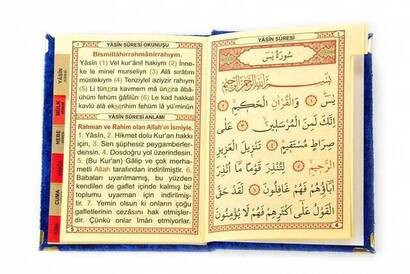 YÂSÎN SÛRESİ OKUNUŞU
Bismillâhirrahmânirrahıym.
Yâsîn (1) Vel kur'ânil hakiym (2) İnne-
ke le minel murseliyn (3) Alâ sırâtım
müstekıym (4) Tenziylel aziyzir rahıym
(5) Li tünzira kavmem mâ ünzira âbâ-
ühüm fehüm ğâfilûn (6) Le kad hakkal
kavlü alâ ekserihim fehüm lâ yü'minûn
YÂSÎN SÛRESİ ANLAMI
Rahman ve Rahim olan Allah'ın İsmiyle.
1. Yâsîn, 2. Hikmet dolu Kur'an hakkı
için, 3. Sen şüphesiz peygamberler-
densin. 4. Dosdoğru yol üzerindesin.
5. (Bu Kur'an) Gâlip ve çok merha-
metli Allah tarafından indirilmiştir. 6.
Babaları uyarılmamış, bu yüzden
kendileri de gaflet içinde kalmış bir
toplumu uyarman için indirilmiş-
tir. 7. Yemin olsun ki onların çoğu
gafletlerinin cezâsını hak etmişler-
dir. Çünkü onlar îman etmiyorlar.
5
YÂSÎN
MÜLK
NEBE
CUMA
YÂSÎN SÛRESİ
سُورَةُ يٰسٓ
بِسْمِ اللّٰهِ الرَّحْمٰنِ الرَّحِيمِ
يٰسٓ ﴿١﴾ وَالْقُرْاٰنِ الْحَكِيمِ ﴿٢﴾
اِنَّكَ لَمِنَ الْمُرْسَلِينَ ﴿٣﴾ عَلٰى
صِرَاطٍ مُسْتَقِيمٍ ﴿٤﴾ تَنْزِيلَ الْعَزِيزِ
الرَّحِيمِ ﴿٥﴾ لِتُنْذِرَ قَوْمًا مَٓا اُنْذِرَ
اٰبَٓاؤُهُمْ فَهُمْ غَافِلُونَ ﴿٦﴾ لَقَدْ حَقَّ
الْقَوْلُ عَلٰٓى اَكْثَرِهِمْ فَهُمْ لَا يُؤْمِنُونَ
4